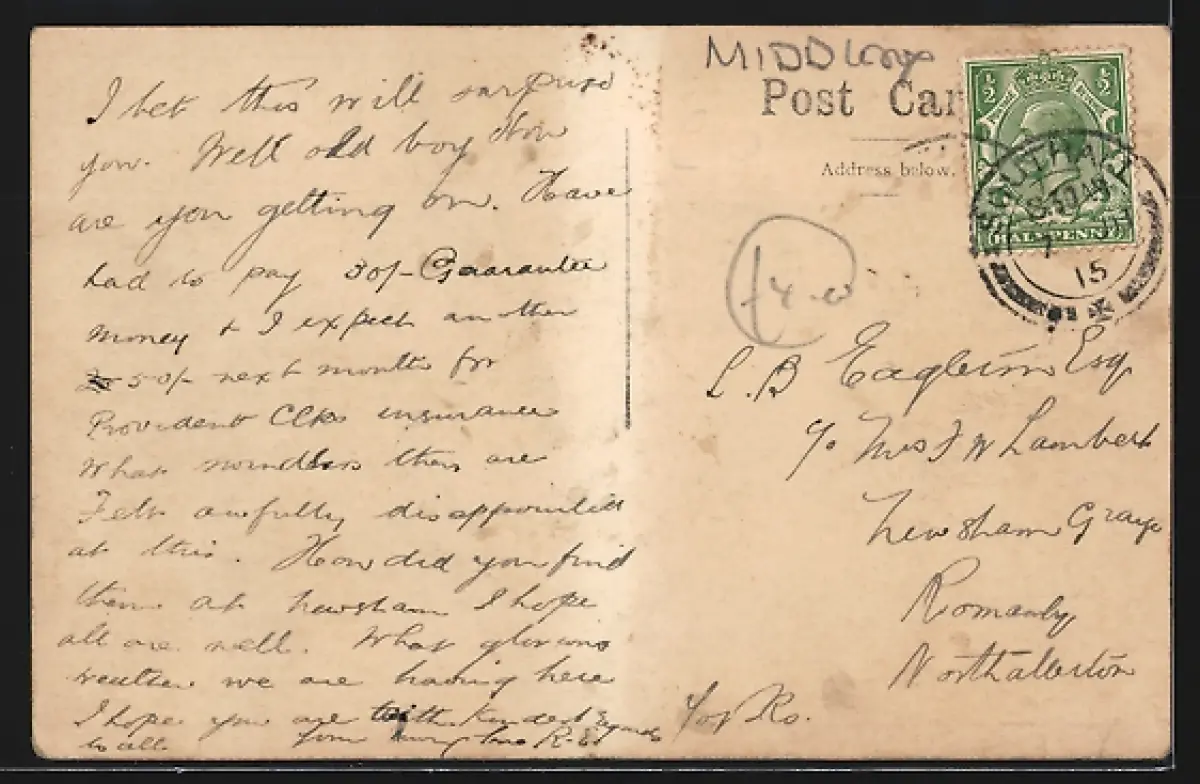 I bet this will surprise
you. Well old boy How
are you getting on. Have
had to pay 30/- Guarantee
money & I expect another
50/- next month for
Provident Clks insurance
What they are
Felt awfully disappointed
at this. How did you find
them at Newsham I hope
all are well. What glorious
weather we are having here
I hope you are with kindest regards
to all
MIDDLESEX
Post Car
Address below.
½ ½
HALFPENNY
SOUTHALL
15
£4.00
L. B Eagleton Esq
c/o Mrs F W Lambert
Newsham Grange
Romanby
Northallerton
Yorks.